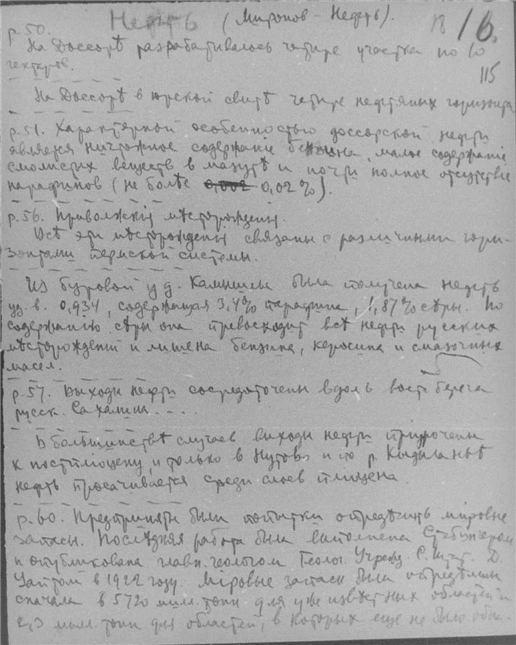 Нефть (Миронов - Нефть). 18 16.
р. 50.
На Доссорѣ разрабатывалось четыре участка по 10
гектаров.
115
На Доссорѣ в юрской свитѣ четыре нефтяных горизонта
р. 51. Характерной особенностью доссорской нефти
является ничтожное содержание бензина, малое содержание
смолистых веществ в мазутѣ и почти полное отсутствие
парафинов (не болѣе 0,002 0,02%).
р. 56. Приволжскія мѣсторожденія.
Всѣ эти мѣсторожденія связаны с различными гори-
зонтами пермской системы.
Из буровой у д. Камышлы была получена нефть
уд. в. 0,934, содержащая 3,4% парафина, 1,87% сѣры. По
содержанию сѣры она превосходит всѣ нефти русских
мѣсторождений и лишена бензина, керосина и смазочных
масел.
р. 57. Выходы нефти сосредоточены вдоль вост. берега
русск. Сахалина....
В большинствѣ случаев выходы нефти приурочены
к постплиоцену, и только в Нутово и по р.
нефть просачивается среди слоев плиоцена.
р. 60. Предприняты были попытки опредѣлить міровые
запасы. Послѣдняя работа была выполнена Стебингером
и опубликована главн. геологом Геолог. Учрежд. С. Штат. Д.
Уайтом в 1922 году. Міровые запасы были опредѣлены
сначала в 5720 милл. тонн для уже извѣстных областей и
милл. тонн для областей, в которых еще не было